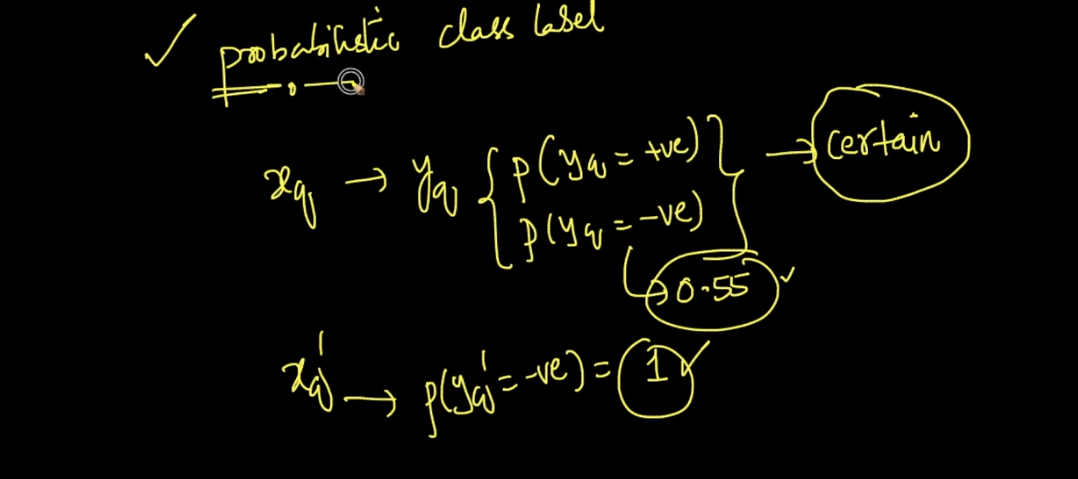 ✓ probabilistic class label
x_q → y_q { p(y_q = +ve) } → certain
p(y_q = -ve)
→ 0.55 ✓
x_q' → p(y_q' = -ve) = 1 ✓